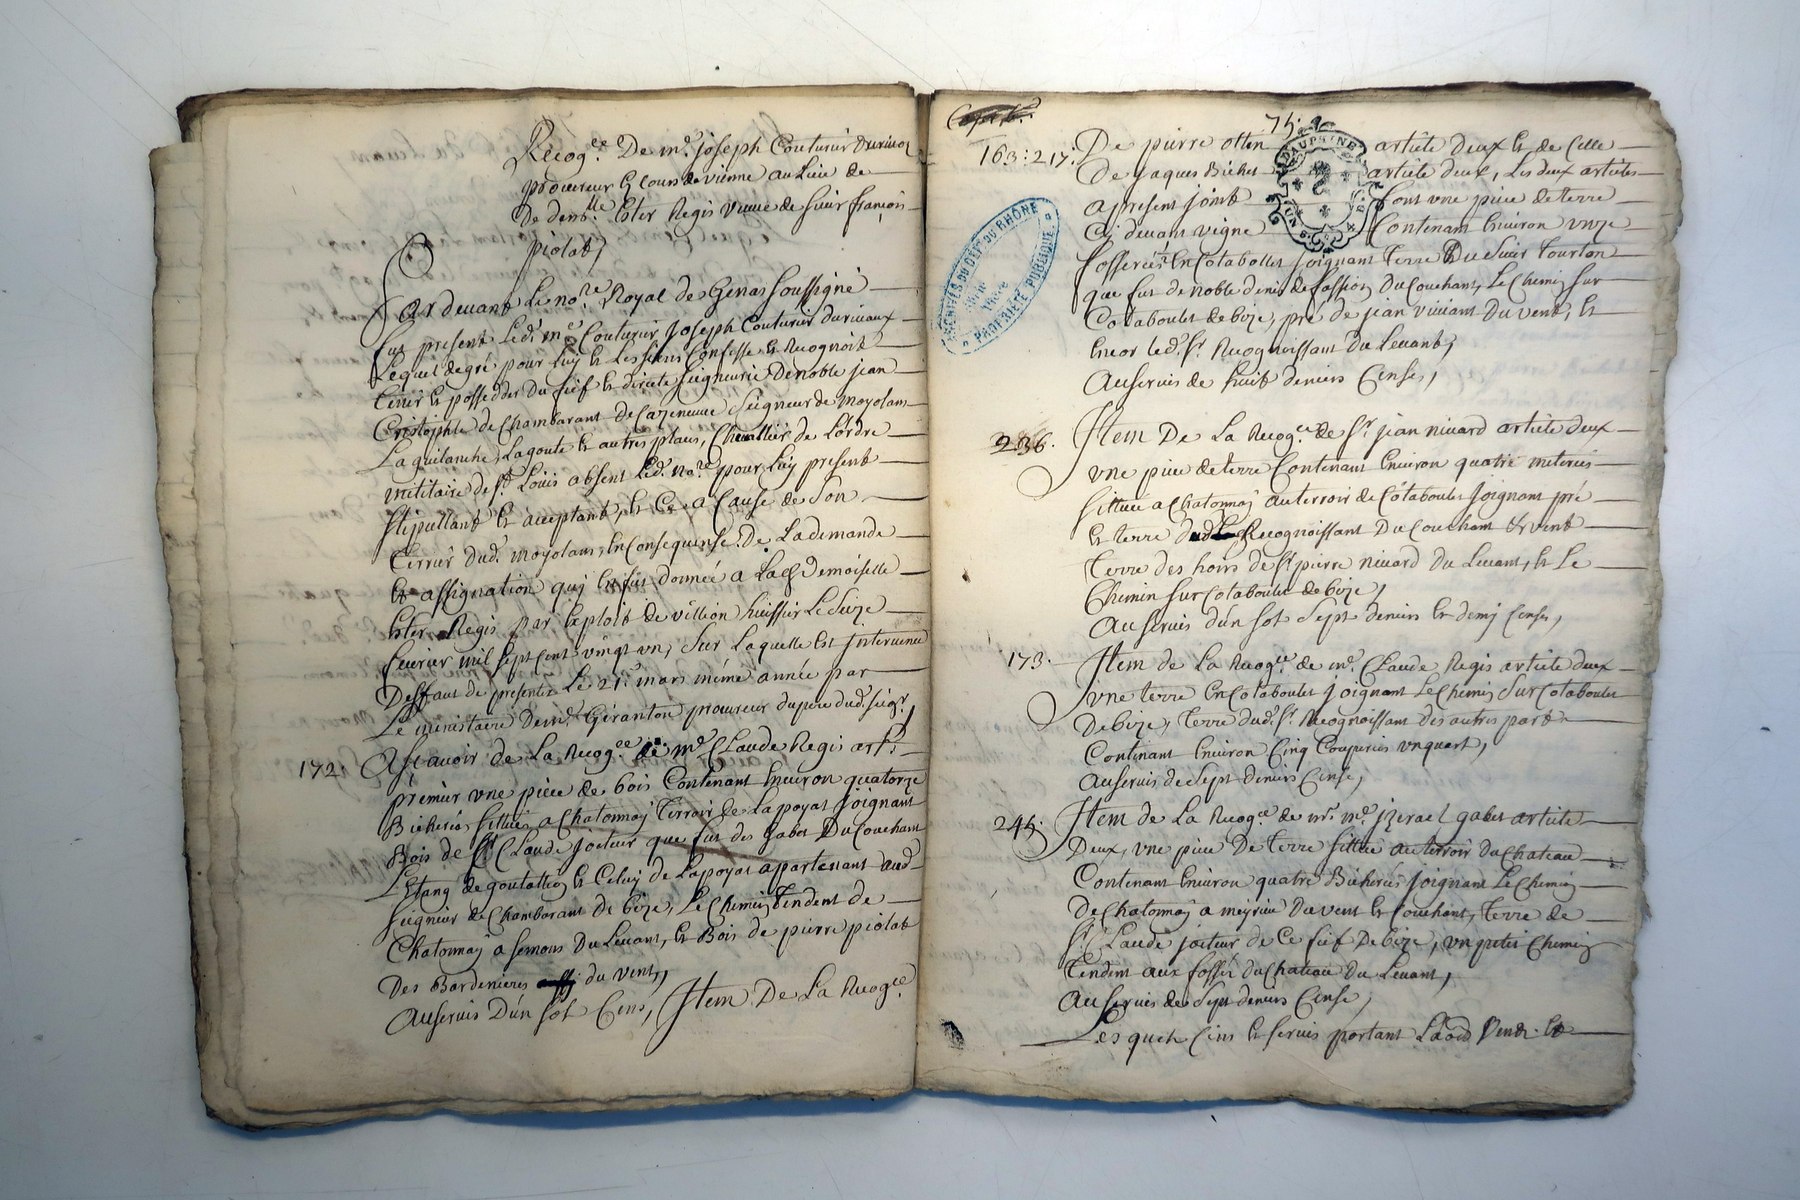 Recog.ce De m.e joseph Couturier durivox
procureur Es cours de vienne au Lieu de
De dem.lle Ester Regis veuve de sieur françois
piolat,
Par devant Le no.re Royal de Genas soussigné
fut present Led. m.e Couturier joseph Couturier durivaux
Lequel de gré pour luy et Les siens Confesse et Recognoit
tenir et posseder du fief et directe seigneurie De noble jean
Cristophle de Chambarant de Cazeneuve seigneur de moyolans
La guilanche, Lagoute et autres places, Chevallier de Lordre
militaire de S.t Louis absent Led. no.re pour Luy present
stipullant et acceptant, et Ce a Cause de son
terrier dud. moyolans, en Consequense De La demande
et assignation quy en fut donnée a Lad. Demoiselle
Ester Regis par Exploit de vellion huissier Le seize
fevrier mil sept cent vingt un, sur Laquelle Est intervenu
Deffaut de presenter Le 21.e mars même année par
Le ministaire de m.e Geranton procureur du pere dud. seig.r
172. Ascavoir de La Recog.ce de m.e Claude Regis art.e
premier une piece de bois Contenant Environ quatorze
Bicherées sittuée a Chatonnay terroir de La poyat joignant
Bois de S.r Claude jocteur que fut des gabet Du Couchant
L'Etang de goutallioz et Celuy de Lapoyat apartenant aud.
seigneur de Chambarant de bize, Le Chemin tendent de
Chatonnay a semons Du Levant, et Bois de pierre piolat
Des Bardenieres du vent,
Au servis D'un sol Cens, Item De La Recog.ce
75.
163: 217: De pierre otten article deux et de Celle
De jaques Bichet article deux, Les deux articles
a present joints font une piece de terre
Cy devant vigne Contenant Environ unze
fosserées En Cotabollet joignant terre Du sieur tourton
que fut de noble denis de fassion Du Couchant, Le Chemin sur
Cotaboulet de bize, pré de jean viviant Du vent, et
Encor led. S.r Recognoissant Du Levant,
Au servis de huit deniers Cense,
236. Item De La Recog.ce de S.r jean nivard article deux
une piece de terre Contenant Environ quatre meterées
sittuée a Chatonnay au terroir de Cotaboulet joignant pré
et terre dud. Recognoissant Du Couchant & vent
terre des hoirs de S.r pierre nivard du Levant, et Le
Chemin sur Cotaboulet de bize,
Au servis d'un sol sept deniers et demy Cense,
173. Item de La Recog.ce de m.e Claude Regis article deux
une terre En Cotaboulet joignant Le Chemin sur Cotaboulet
De bize, terre dud. S.r Recognoissant des autres parts
Contenant Environ Cinq Couperées un quart,
Au servis de sept deniers Cense,
245. Item de La Recog.ce de m.r m.e jzerael gabet article
Deux, une piece De terre sittuée au terroir du Chateau
Contenant Environ quatre Bicherées joignant Le Chemin
De Chatonnay a meyrieu Du vent et Couchant, terre de
S.r Claude jocteur de Ce fief De bize, un petit Chemin
tendent aux fossés du Chateau Du Levant,
Au servis de sept deniers Cense,
Lesquels Cens et servis portant Laods vends et
DAUPHINE
ARCHIVES DU DEP.T DU RHÔNE
PROPRIÉTÉ PUBLIQUE